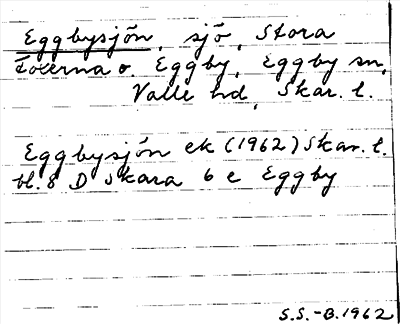 Eggbysjön, sjö, Stora
Torerna o. Eggby, Eggby sn,
Valle hd, Skar. l.
Eggbysjön ek (1962) Skar. l.
bl. 8 D Skara 6 e Eggby
S.S.-B. 1962